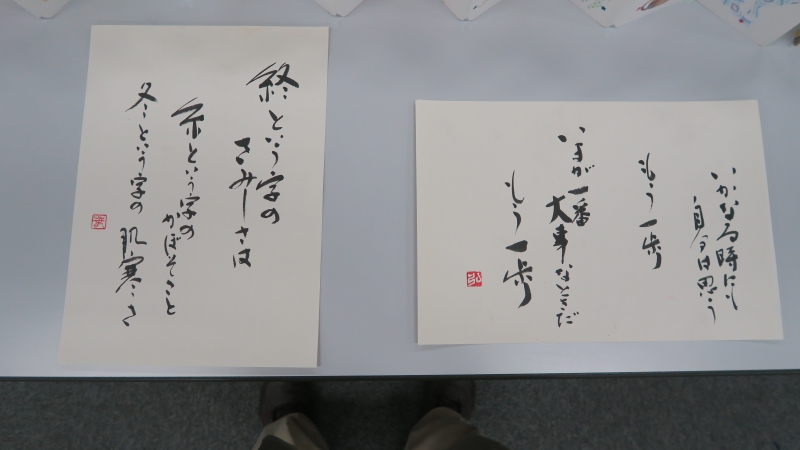 終という字の
さみしさは
糸という字の
かぼそさと
冬という字の肌寒さ
いかなる時にも
自分は思う
もう一歩
いまが一番
大事なときだ
もう一歩